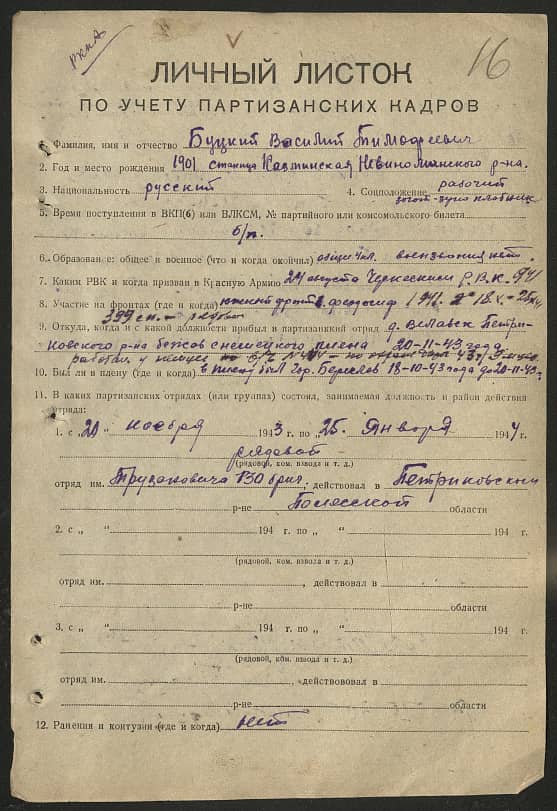 РККА
16
ЛИЧНЫЙ ЛИСТОК
ПО УЧЕТУ ПАРТИЗАНСКИХ КАДРОВ
1. Фамилия, имя и отчество Буцкий Василий Тимофеевич
2. Год и место рождения 1901 станица Казминская Невиномынского р-на.
3. Национальность русский 4. Соцположение рабочий
плотник
5. Время поступления в ВКП(б) или ВЛКСМ, № партийного или комсомольского билета
б/п.
6. Образование: общее и военное (что и когда окончил) воензвания нет.
7. Каким РВК и когда призван в Красную Армию 24 августа Черкесским Р.В.К. 941
8. Участие на фронтах (где и когда) фронт 1941
399 сп.
9. Откуда, когда и с какой должности прибыл в партизанский отряд д. Велавск Петри-
ковского р-на бежав с немецкого плена 20-11-43 года
работал у немцев
10. Был ли в плену (где и когда) в плену был гор. 18-10-43 года до 20-11-43 г.
11. В каких партизанских отрядах (или группах) состоял, занимаемая должность и район действия
отряда:
1. с „20 ноября 1943 г. по „25. Января 1944 г.
рядовой
(рядовой, ком. взвода и т. д.)
отряд им. 130 бриг., действовал в Петриковском
р-не Полесской области
2. с „ “ 194 г. по „ “ 194 г.
(рядовой, ком. взвода и т. д.)
отряд им. , действовал в
р-не области
3. с „ “ 194 г. по „ “ 194 г.
(рядовой, ком. взвода и т. д.)
отряд им. , действовал в
р-не области
12. Ранения и контузии (где и когда) нет